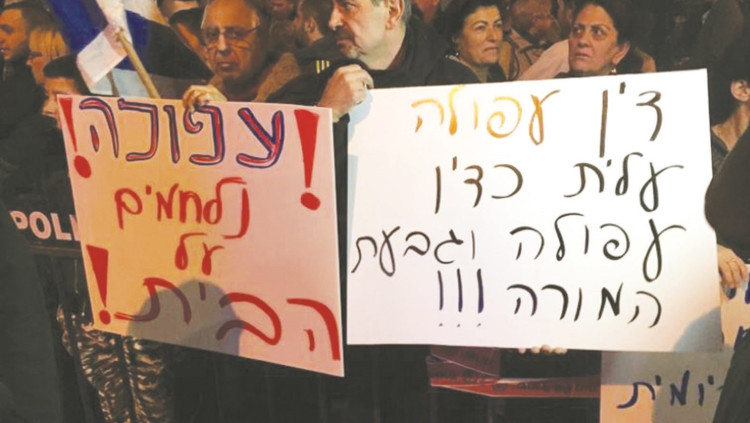 דין עפולה
עלית כדין
עפולה וגבעת
המורה !!!
!עפולה!
נלחמים
על
הבית!
POLI
יומית